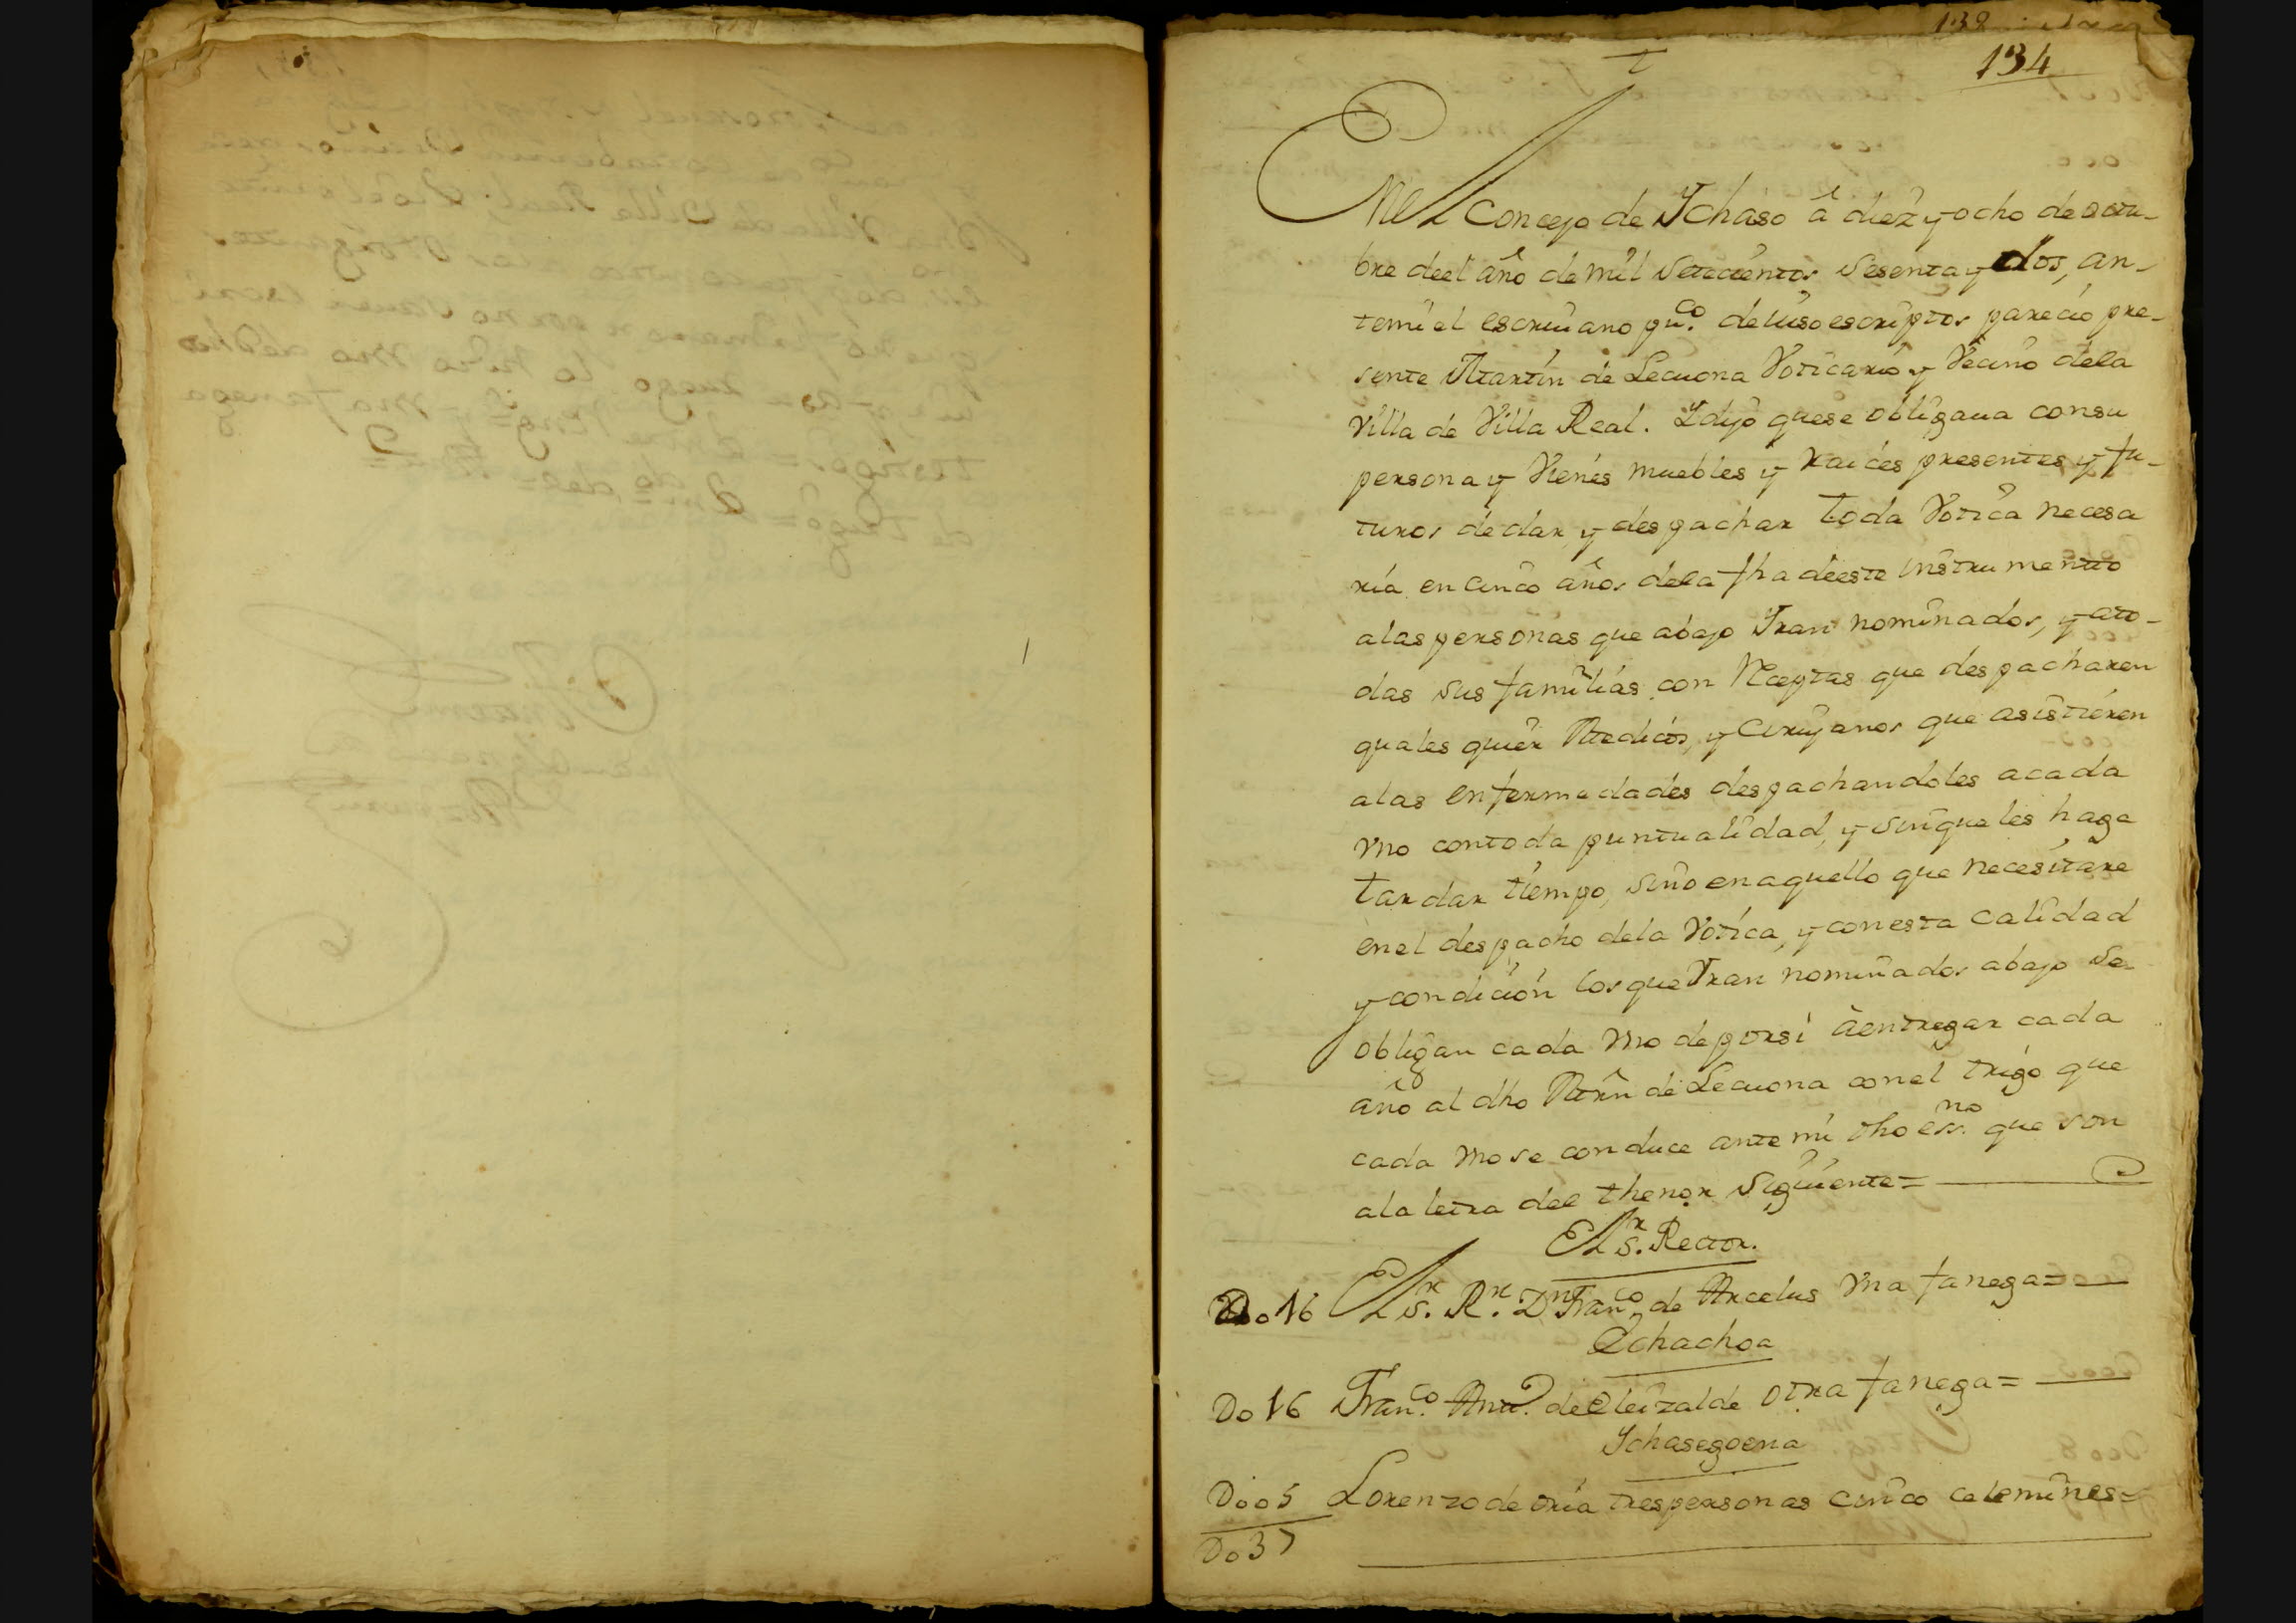 134
En el Concejo de Ychaso â diez y ocho de octu-
bre deel año de mil setecientos sesenta y dos, an-
temi el escriuano pu.co de luso escriptos parecio pre-
sente Martin de Lecuona Voticario y Vecino dela
Villa de Villa Real. Ydijo quese obligaua consu
persona y Vienes muebles y raices presentes y fu-
turos de dar, y despachar toda Votica necesa
ria en cinco años dela fha deeste instrumento
alas personas que abajo Yran nominados, y ato-
das sus familias con Rceptas que despacharen
quales quier Medicos, y Cirujanos que asistieren
alas enfermedades despachandoles acada
vno contoda puntualidad, y sin que les haga
tardar tiempo, sino en aquello que necesitare
en el despacho dela Votica, y con esta calidad
y condicion los que Yran nominados abajo se
obligan cada vno de porsi â entregar cada
año al dho Mrn de Lecuona con el trigo que
cada vno se conduce ante mi dho es.no que son
ala letra del thenor siguiente=
El S.r Rector.
Do16 El S.r R.r Dn Fran.co de Arcelus vna fanega=
Echachoa
Do16 Fran.co Ant.o de Eleizalde otra fanega=
Ychasegoena
Doo5 Lorenzo de oria tres personas cinco celemines=
Do37